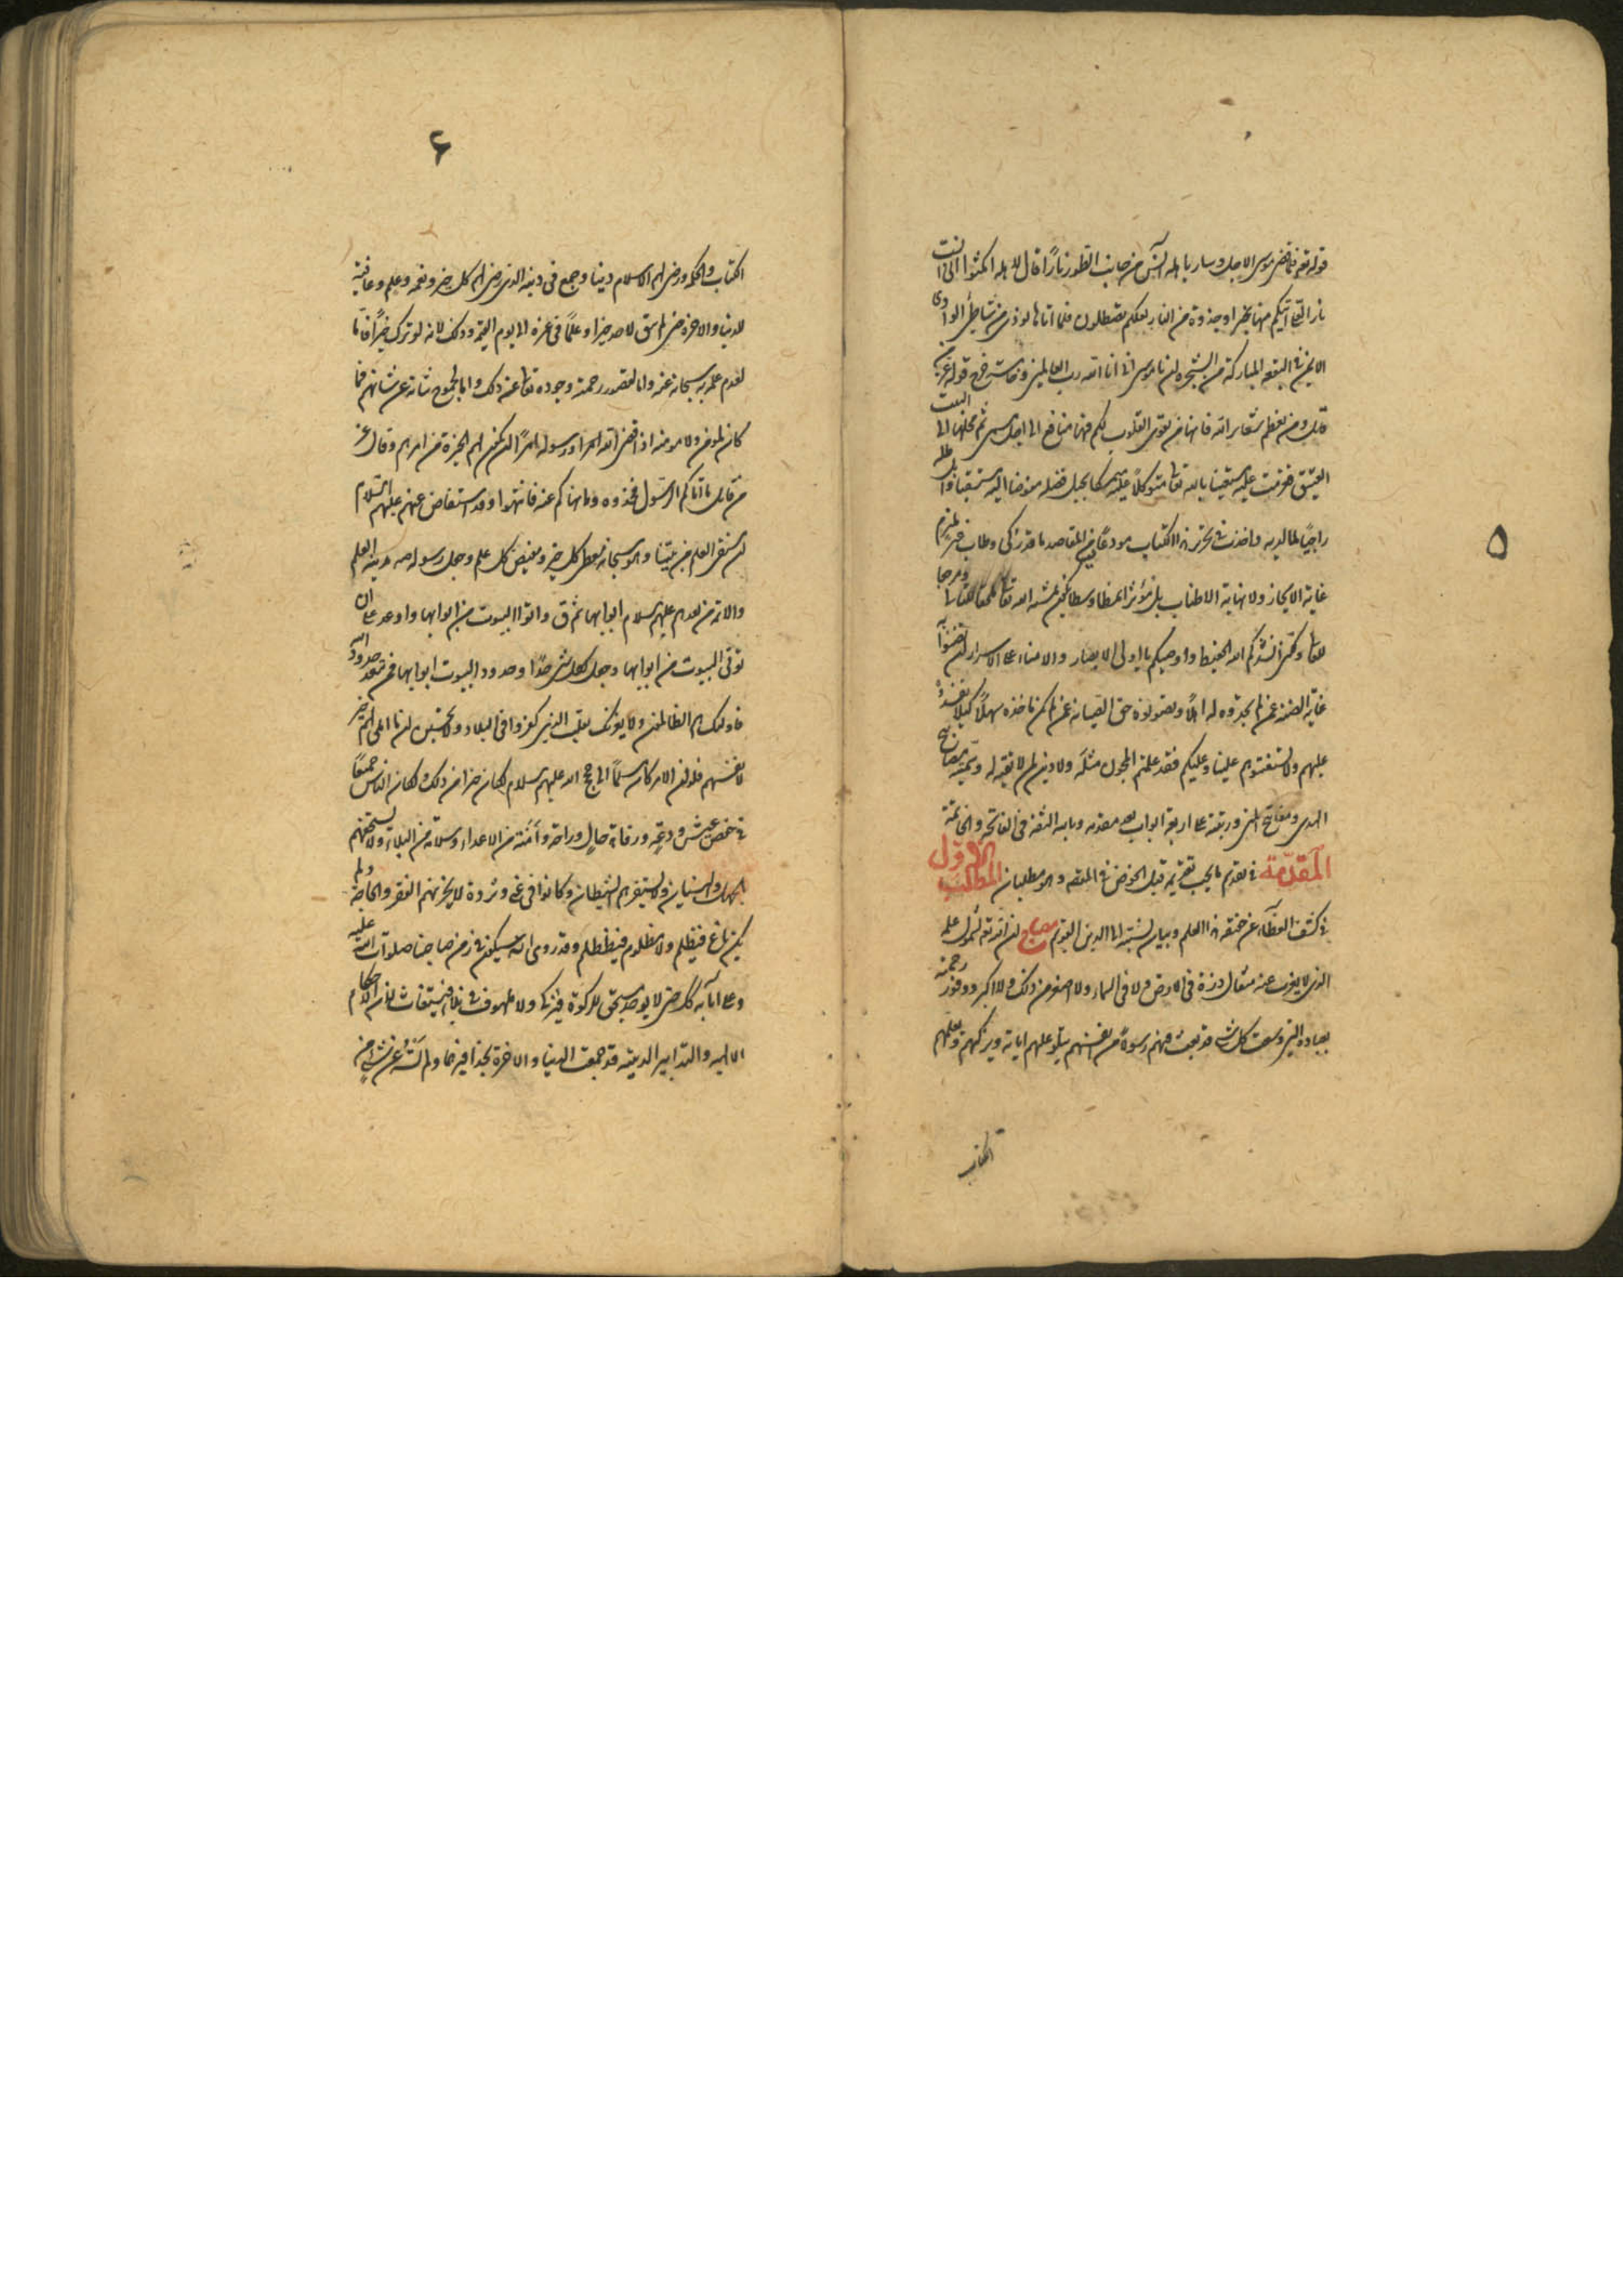 ۵
قوله تع فلما قضى موسى الاجل وسار باهله آنس من جانب الطور نارًا قال لاهله امكثوا انى آنست
نارا لعلى آتيكم منها بخبر او جذوة من النار لعلكم تصطلون فلما اتاها نودى من شاطئ الوادى
الايمن فى البقعه المباركة من الشجره ان يا موسى انى انا الله رب العالمين وتفأست قوله عز من
قايل ومن يعظم شعاير الله فانها من تقوى القلوب لكم فيها منافع الى اجل مسمى ثم محلها الى البيت
العتيق فعزمت عليه مستعينا بالله تعا متوكلا عليه متمسكا بحبل فضله مفوضا اليه
راجيًا لما لديه واخذت فى تحرير هذا الكتاب مودعًا فيه من المقاصد ما قد زكى وطاب غير ملتزم
غاية الايجاز ولا نهاية الاطناب بل مؤثرا نمطا وسطا يكون بمشية الله تعا
وكثيرا انشدكم الله الحفيظ واوصيكم يا اولى الابصار والامناء على الاسرار ان تضنوا
غاية الضنة عمن لم تجدوه له اهلًا وتصونوه حق الصيانة عمن لم يكن ياخذه سهلًا كيلا
عليهم ولا يستفتوهم علينا وعليكم فقد علمتم المجهول مثله ولا دين لمن لا تقية له وسميته بمصابيح
الهدى ومفاتيح المنى ورتبته على اربعة ابواب بعد مقدمه وبالله الثقه فى الفاتحه والخاتمة
المقدّمة فى تقديم ما يجب تقديمه قبل الخوض فى المقصد وهو مطلبان المطلب الاوّل
فى كشف الغطآء عن حقيقة هذا العلم وبيان نسبته الى الدين القويم مصباح ان الله تع لشمول علمه
الذى لا يعزب عنه مثقال ذرة فى الارض ولا فى السماء ولا اصغر من ذلك ولا اكبر ووفور رحمته
بعباده التى وسعت كل شئ قد بعث فيهم رسولا من انفسهم يتلو عليهم آياته ويزكيهم ويعلمهم
الكتاب
۶
الكتاب والحكمه ورضى لهم الاسلام دينا وجمع فى دينه الذى رضى لهم كل خير ونعمه وعلم وعافية
للدنيا والاخرة حتى لم يبق لاحد خيرا وعلمًا فى غيره الى يوم القيمة وذلك لانه لو ترك خيرًا فاما
لعدم علمه به سبحانه عنه واما لقصور رحمته وجوده تعا عن ذلك واما لجموح شانه عن شانهم فما
كان لمؤمن ولا مومنه اذا قضى الله امرا ورسوله امرًا ان يكون لهم الخيرة من امرهم وقال عز
من قايل ما آتاكم الرسول فخذوه وما نهاكم عنه فانتهوا وقد استفاض عنهم عليهم السلام
ان منتشر العلم من بيتنا وهو سبحانه معطى كل خير ومفيض كل علم وجعل رسوله صه مدينه العلم
والائمه من بعده عليهم السلام ابوابها ثم قال واتوا البيوت من ابوابها واوعد على ان
تؤتى البيوت من ابوابها وجعل لكل شئ حدًا وحدود البيوت ابوابها فمن تعد حدود الله
فاولئك هم الظالمون ولا يغرنك تقلب الذين كفروا فى البلاد ولا تحسبن ان ما املى لهم خير
لانفسهم فلو ان الامر كان مسلمًا الى حجج الله عليهم السلام لكان خيرا من ذلك ولكان الناس جميعًا
فى خفض عيش ودعة ورفاه حال وراحة وأمنه من الاعداء وسلامة من البلاء ولا تستخفهم
الجهل والنسيان ولا يستفزهم الشيطان وكانوا فى غنى وثروة لا يحزنهم الفقر والحاجة ولم
يكن باغ فيظلم ولا مظلوم فيظلم وقد روى انه سيكون فى زمن صاحبنا صلوات الله عليه
وعلى آبائه ذلك حتى لا يوجد مستحق للزكوة ولا ملهوف فى بلد فيستغاث لان الاحكام
الالهيه والتدابير الدينيه قد جمعت الدنيا والاخرة بحذافيرهما ولم تشذ عن شئ من